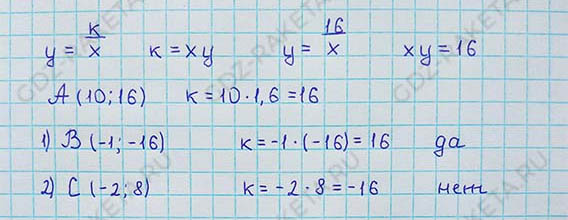 y = к/x к = xy y = 16/x xy = 16
A (10; 16) к = 10 · 1,6 = 16
1) B (-1; -16) к = -1 · (-16) = 16 да
2) C (-2; 8) к = -2 · 8 = -16 нет
GDZ-RAKETA.RU